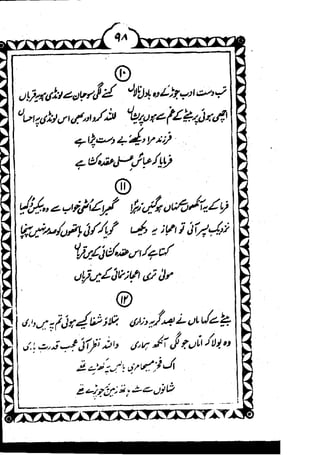 ۹۸
۱۰
تب دست ادب جوڑ کے وہ بادل نالاں کہنے لگی سو جان سے لونڈی ہو یہ قرباں
اچھی ہوئی بیٹے کے غم سے ہوں پریشاں للہ کرو اور بھی اس لونڈی پہ احساں
فرزند مرا دیکھئے بے دست پڑا ہے
فرمایا کہ عباسؑ عقدہ کشا ہے
۱۱
فرما کے یہ آنکھوں سے نہاں ہو گئیں زہراؑ گھبرا کے اٹھی خواب سے وہ بیکس و دکھیا
نزدیک پسر آئی تو اعجاز یہ دیکھا گویا کہ کوئی ہاتھوں کو صدمہ نہیں پہنچا
کہتا ہے کہ اس عقدہ کشائی کے میں قرباں
مولیٰ تری اعجاز نمائی کے میں قرباں
۱۲
بیٹے سے کہا ماں نے بصد گریہ و زاری بتلاؤ شفا کیسے ہوئی تم پہ میں واری
وہ بولا کہ اماں جو لگی آنکھ ہماری واللہ نظر آئی عجب قدرت باری
اک فخر مسیحا مری بالیں پہ کھڑے تھے
شانوں سے